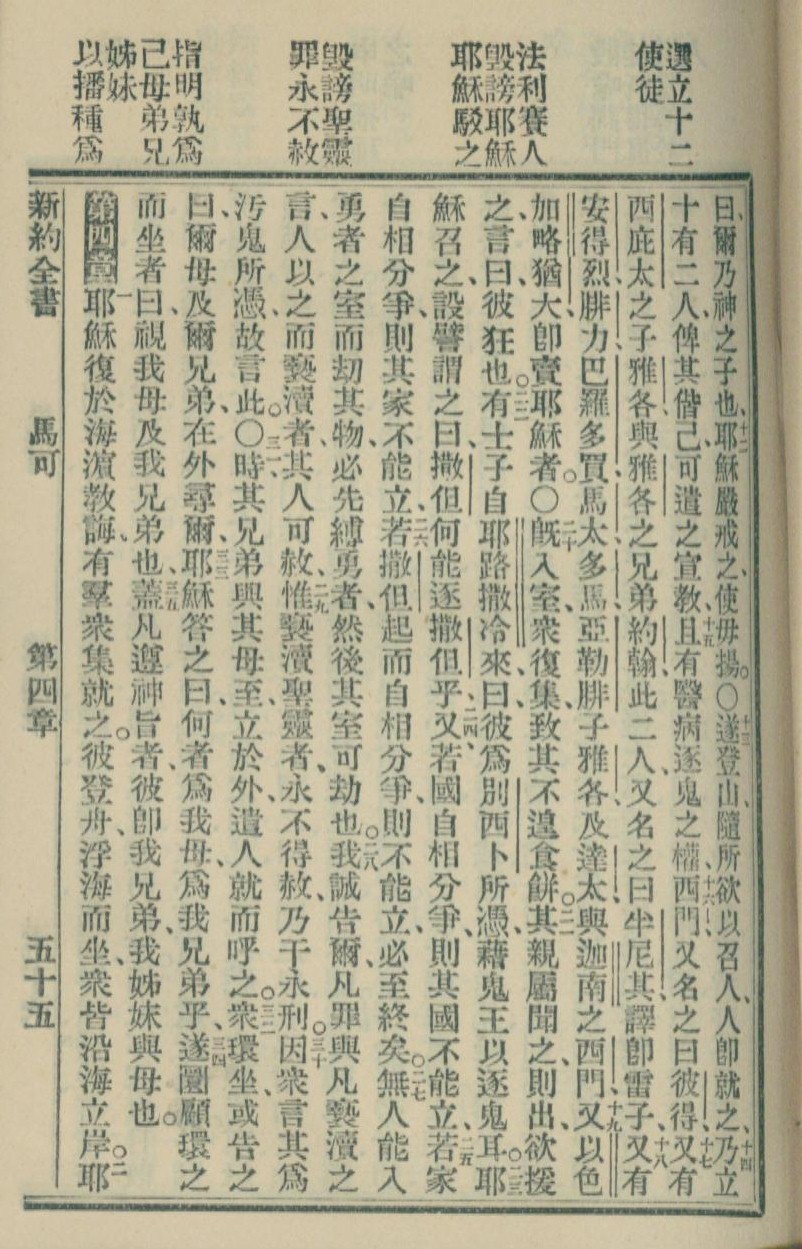 選立十二
使徒
法利賽人
毀謗耶穌
耶穌駁之
毀謗聖靈
罪永不赦
指明孰爲
己母弟兄
姊妹
以播種爲
曰、爾乃神之子也、十二耶穌嚴戒之、使毋揚。〇十三遂登山、隨所欲以召人、人卽就之、十四乃立
十有二人、俾其偕己、可遣之宣敎、十五且有醫病逐鬼之權、十六西門、又名之曰彼得、十七又有
西庇太之子雅各、與雅各之兄弟約翰、此二人又名之曰半尼其、譯卽雷子、十八又有
安得烈、腓力、巴羅多買、馬太、多馬、亞勒腓子雅各、及達太、與迦南之西門、十九又以色
加略猶大、卽賣耶穌者。〇二十旣入室、衆復集、致其不遑食餅。二一其親屬聞之、則出、欲援
之、言曰、彼狂也。二二有士子自耶路撒冷來、曰、彼爲別西卜所憑、藉鬼王以逐鬼耳。二三耶
穌召之、設譬謂之曰、撒但何能逐撒但乎、二四又若國自相分爭、則其國不能立、二五若家
自相分爭、則其家不能立、二六若撒但起而自相分爭、則不能立、必至終矣。二七無人能入
勇者之室而劫其物、必先縛勇者、然後其室可劫也。二八我誠告爾、凡罪與凡褻瀆之
言、人以之而褻瀆者、其人可赦、二九惟褻瀆聖靈者、永不得赦、乃干永刑。三十因衆言其爲
污鬼所憑、故言此。〇三一時其兄弟與其母至、立於外、遣人就而呼之。三二衆環坐、或告之
曰、爾母及爾兄弟、在外尋爾、三三耶穌答之曰、何者爲我母、爲我兄弟乎、三四遂圜顧環之
而坐者、曰、視我母及我兄弟也、三五蓋凡遵神旨者、彼卽我兄弟、我姊妹與母也。
第四章一耶穌復於海濵敎誨、有羣衆集就之。彼登舟、浮海而坐、衆皆沿海立岸。二耶
新約全書 馬可 第四章 五十五